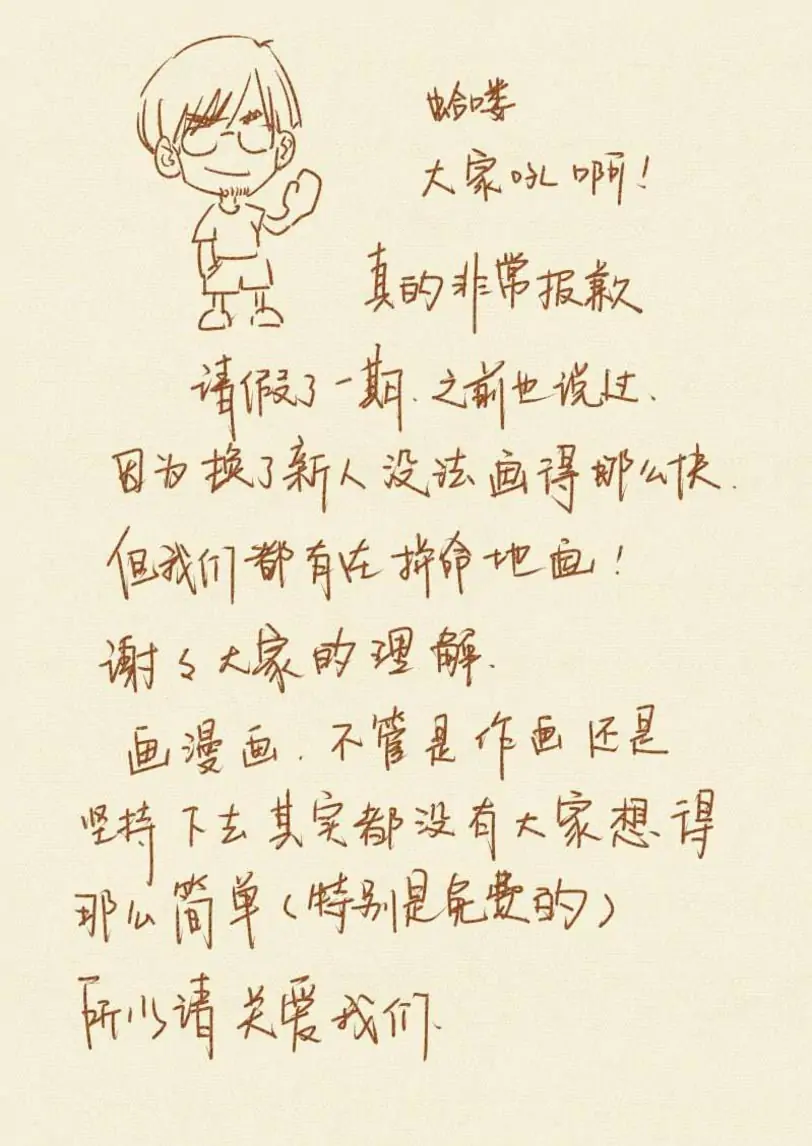 蛤喽
大家吼啊!
真的非常报歉
请假了一期.之前也说过.
因为换了新人没法画得那么快.
但我们都有在拚命地画!
谢々大家的理解.
画漫画.不管是作画还是
坚持下去其实都没有大家想得
那么简单(特别是免费的)
所以请关爱我们.